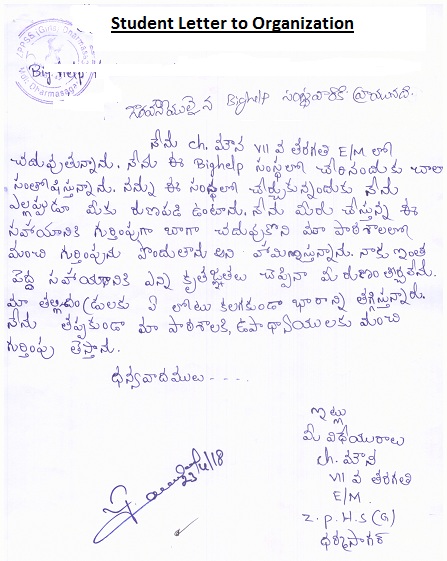 Student Letter to Organization
ZPPSS (Girls) Dharmasagar
Big help
గౌరవనీయులైన Bighelp సంస్థవారికి వ్రాయునది.
నేను ch. మౌన VII వ తరగతి E/M లో
చదువుతున్నాను. నేను ఈ Bighelp సంస్థలో చేరినందుకు చాలా
సంతోషిస్తున్నాను. నన్ను ఈ సంస్థలో చేర్చుకున్నందుకు నేను
ఎల్లప్పుడూ మీకు రుణపడి ఉంటాను. నేను మీరు చేస్తున్న ఈ
సహాయానికి గుర్తింపుగా బాగా చదువుకొని మా పాఠశాలలో
మంచి గుర్తింపును పొందుతాను అని హామిఇస్తున్నాను. నాకు ఇంత
పెద్ద సహాయానికి ఎన్ని కృతజ్ఞతలు చెప్పినా మీ రుణం తీర్చలేను.
మా తల్లిదండ్రులకు ఏ లోటు కలగకుండా భారాన్ని తగ్గిస్తున్నారు.
నేను తప్పకుండా మా పాఠశాలకి, ఉపాధ్యాయులకు మంచి
గుర్తింపు తెస్తాను.
ధన్యవాదములు - - - -
ఇట్లు
మీ విధేయురాలు
ch. మౌన
VII వ తరగతి
E/M.
Z.P.H.S (G)
ధర్మసాగర్